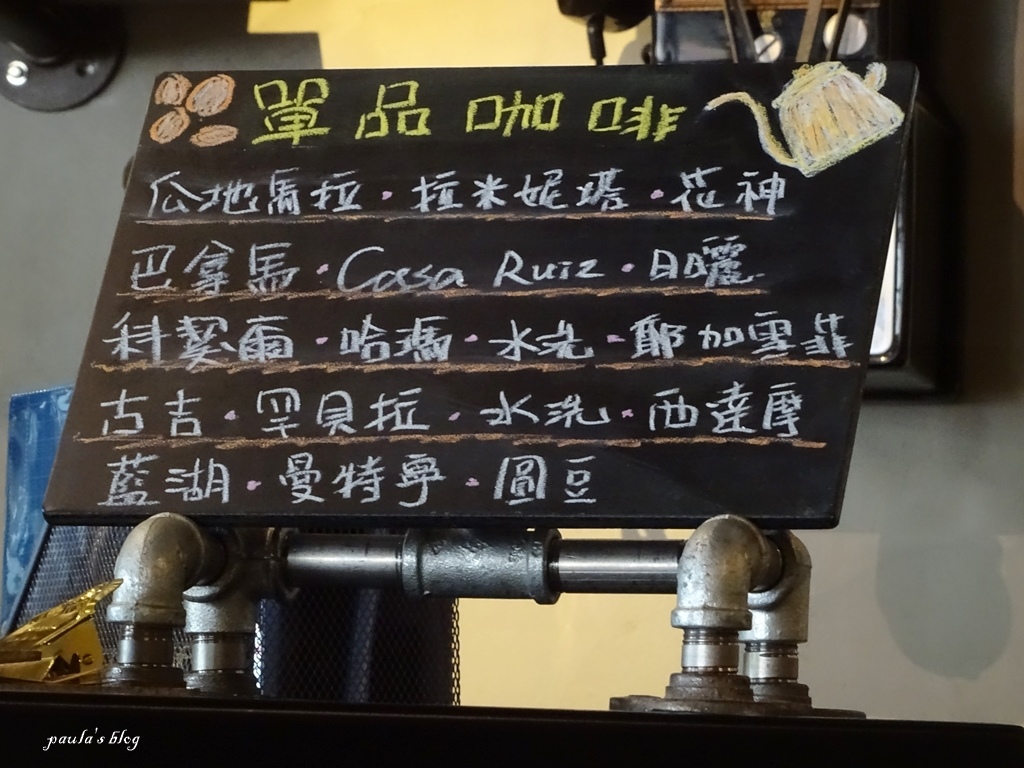 單品咖啡
瓜地馬拉·拉米妮塔·花神
巴拿馬·Casa Ruiz·日曬
科契爾·哈瑪·水洗·耶加雪菲
古吉·罕貝拉·水洗·西達摩
藍湖·曼特寧·圓豆
paula's blog